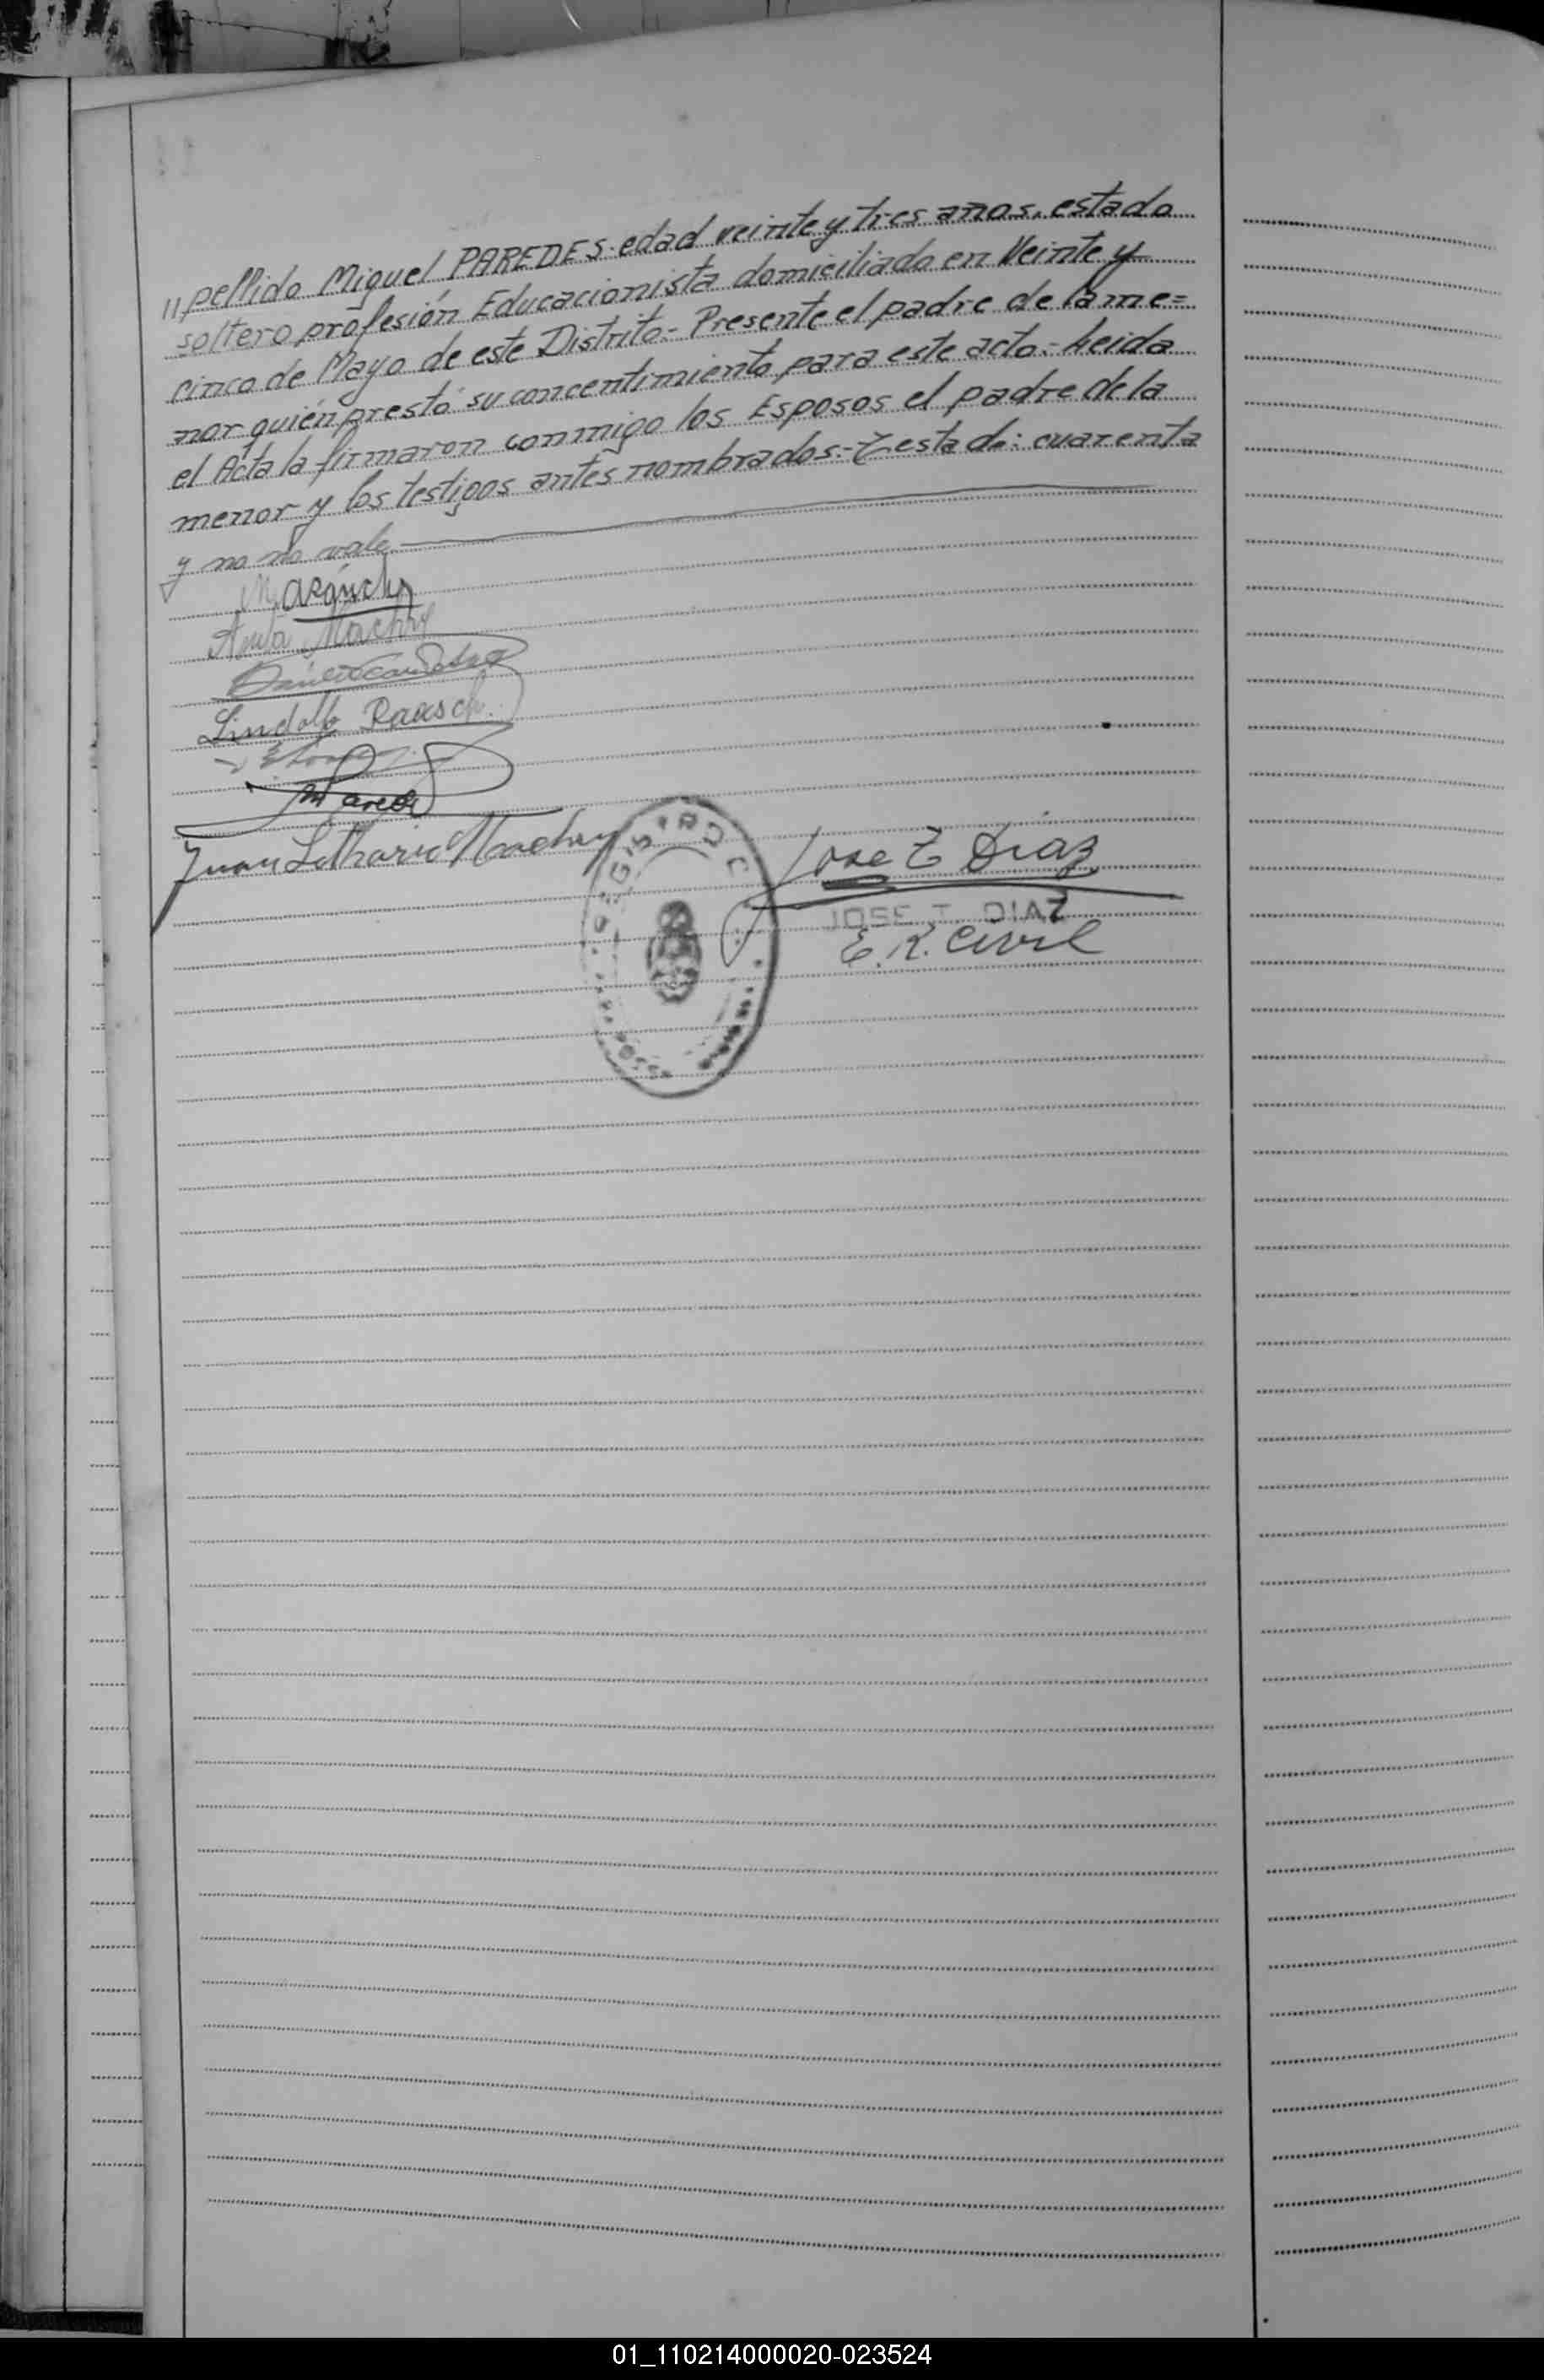 "pellido Miguel PAREDES. edad veinte y tres años. estado
soltero profesión Educacionista domiciliado en Veinte y
cinco de Mayo de este Distrito.- Presente el padre de la me=
nor quién prestó su concentimiento para este acto.- Leida
el Acta la firmaron conmigo los Esposos el padre de la
menor y los testigos antes nombrados.- Testado: cuarenta
y no no vale
Anita Machry
Lindolfo Raasch.
M Paredes
Juan Lothario Machry
Jose T Diaz
JOSE T. DIAZ
E. R. Civil
01_110214000020-023524